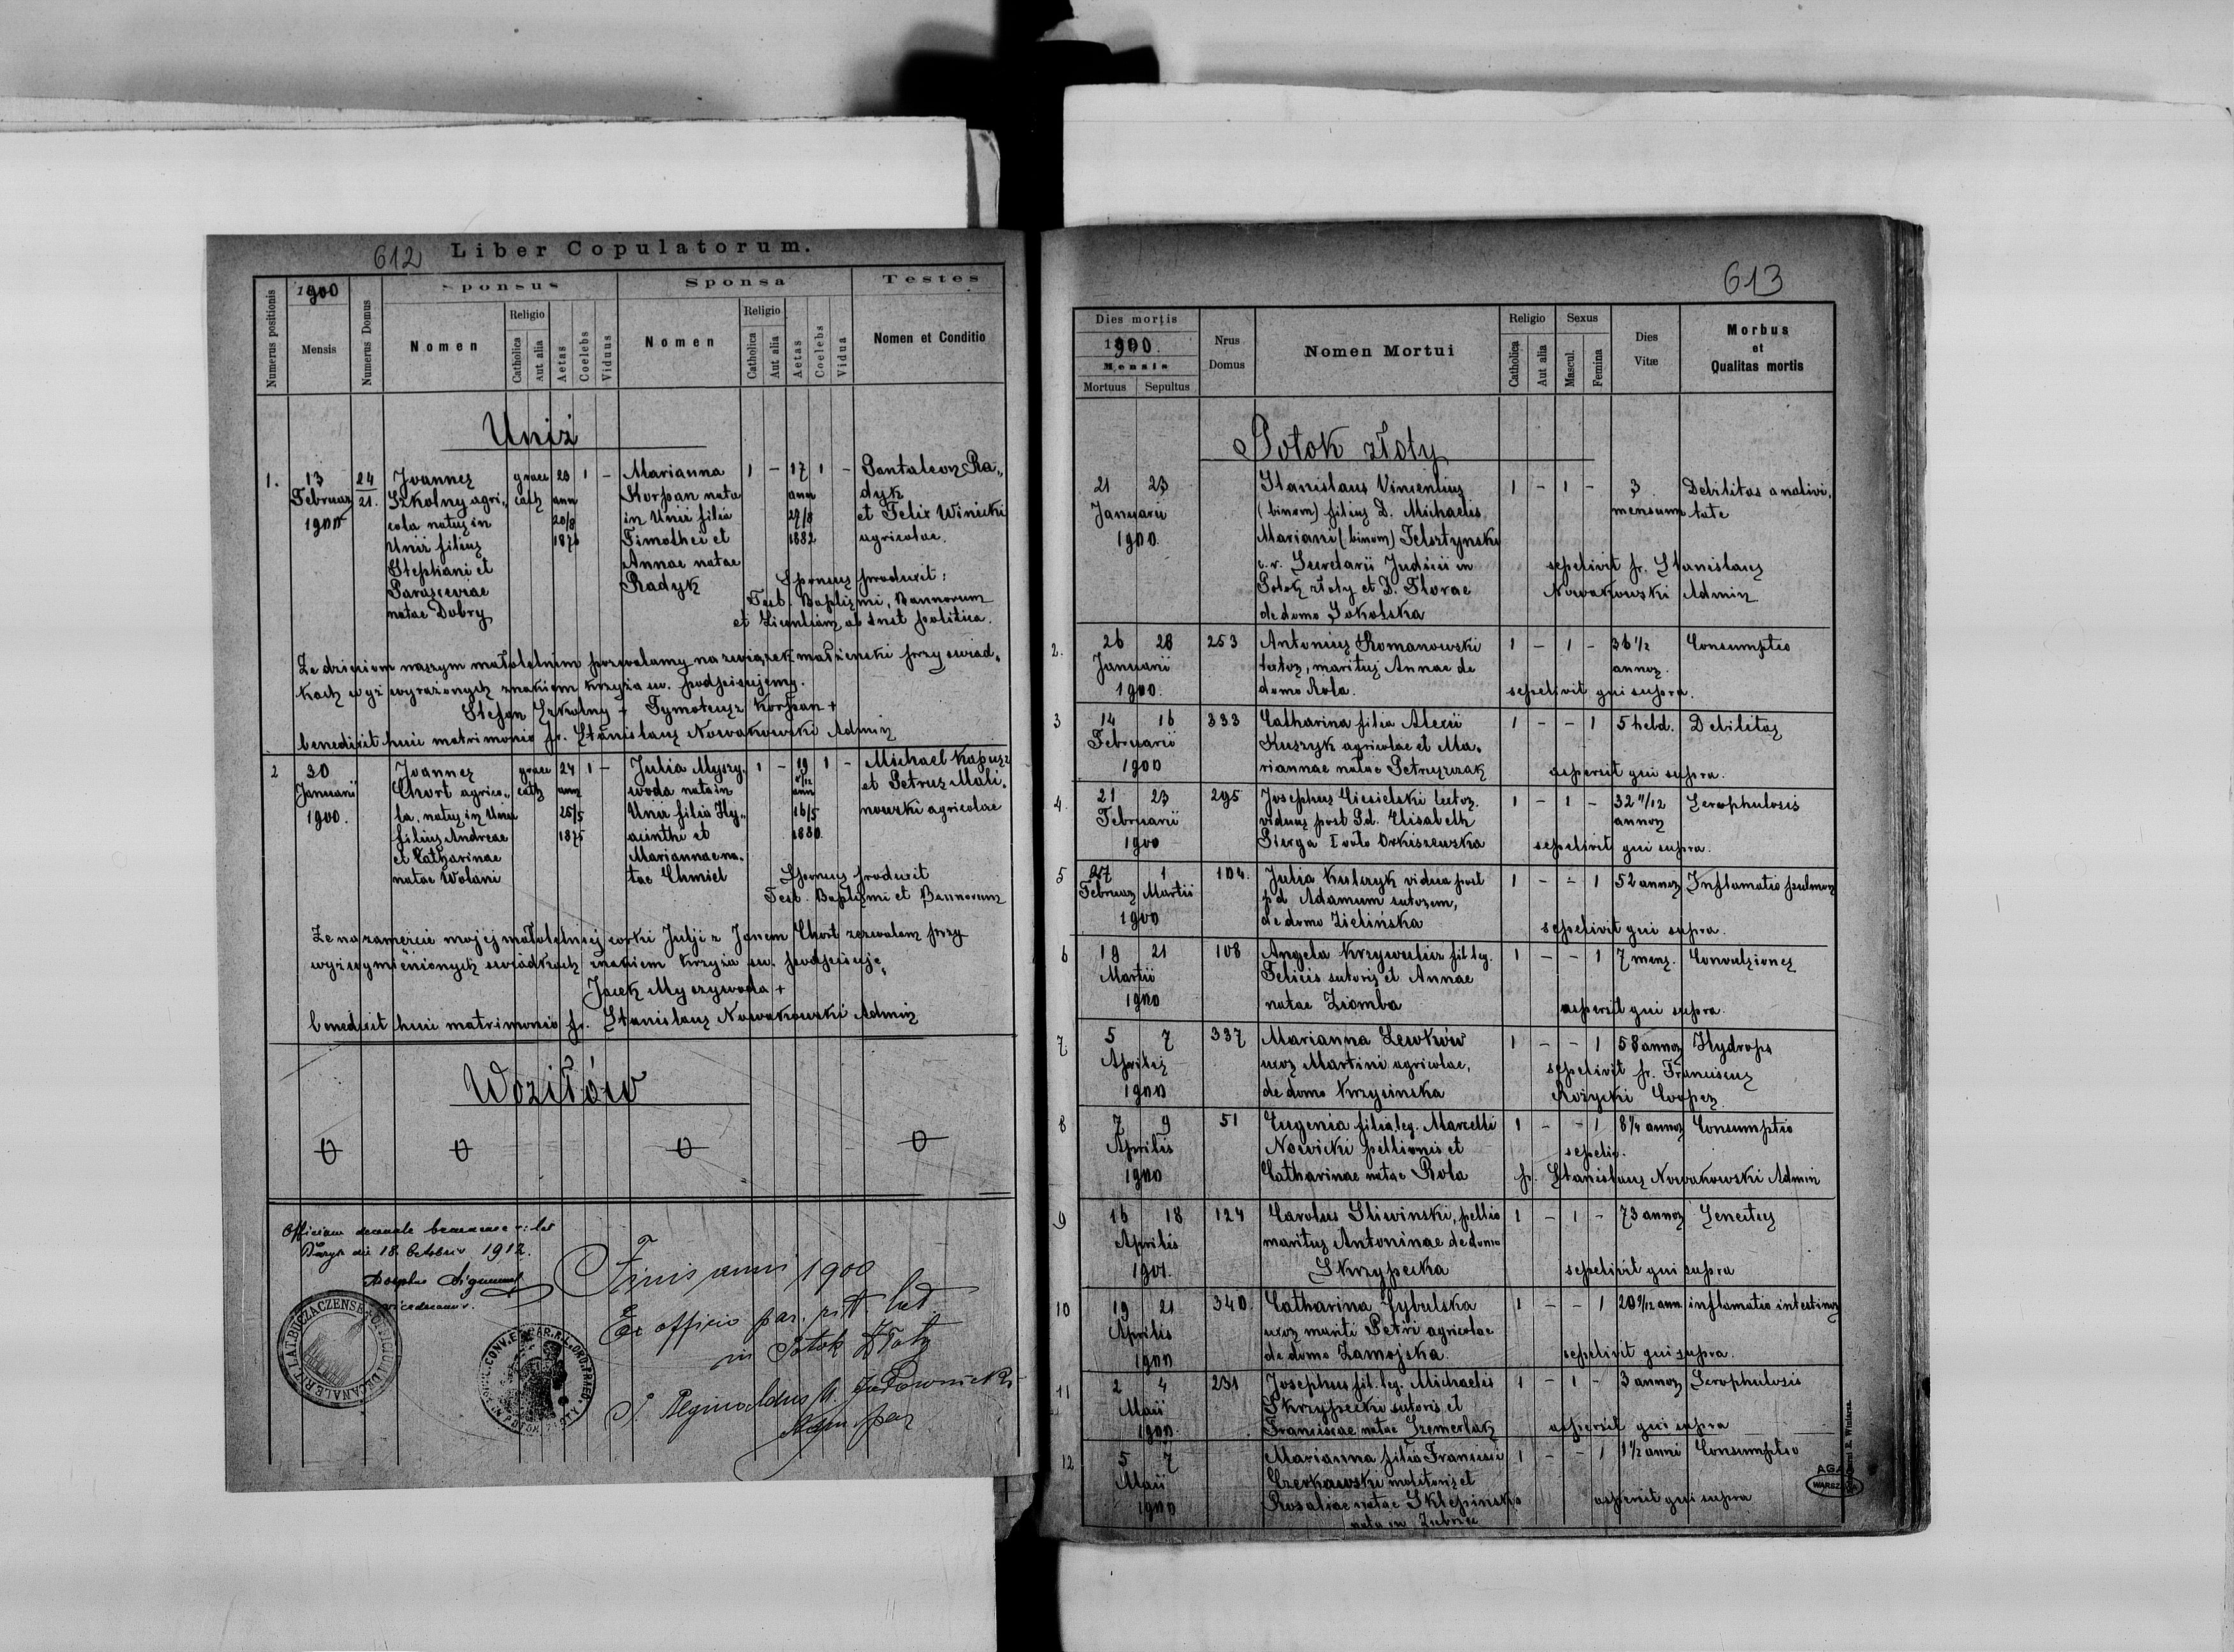 612 Liber Copulatorum.
Numerus positionis
1900
Mensis
Numerus Domus
Sponsus
Nomen
Religio
Catholica
Aut alia
Aetas
Coelebs
Viduus
Sponsa
Nomen
Religio
Catholica
Aut alia
Aetas
Coelebs
Vidua
Testes
Nomen et Conditio
Uniż
1. 13 24 Joannes graec 23 1 - Marianna 1 - 17 1 - Pantaleon Ra„
Februar 21. Szkolny agri„ cath ann Korpan nata ann dyk
1900 cola natus in 20/8 in Uniż filia 29/8 et Felix Winicki
Uniż filius 1876 Timothei et 1882 agricolae.
Stephani et Annae natae
Parasceviae Radyk Sponsus produxit:
natae Dobry Test. Baptismi, Bannorum
et Licentiam ab Inst politica.
Że dzieciom naszym małoletnim pozwalamy na związek małżeński przy świad„
kach wyż wyrażonych znakiem krzyża św. podpisujemy.
Stefan Szkolny + Tymoteusz Korpan +
benedixit huic matrimonio fr. Stanislaus Nowakowski Admin
2 30 Joannes graec 24 1 - Julia Myszy„ 1 - 19 1 - Michael Kapusz
Januarii Chort agrico„ cath ann woda nata in ann et Petrus Mali„
1900. la, natus in Uniż 25/5 Uniż filia Hy„ 16/5 nowski agricolae
filius Andreae 1875 acinthi et 1880.
et Catharinae Mariannae na„
natae Wolani tae Chmiel Sponsus produxit
Test. Baptismi et Bannorum
Że na zamęście mojej małoletniej córki Julji z Janem Chort zezwalam przy
wyż wymienionych świadkach znakiem krzyża św. podpisuję.
Jacek Myszywoda +
benedixit huic matrimonio fr. Stanislaus Nowakowski Admin
Woziłów
0 0 0 0
Officium decanale
die 18 Octobris 1912.
vicedecanus.
Finis anni 1900
Ex officio par. rit. lat.
in Potok Złoty
LAT. BUCZACZENSE OFFICIUM DECANALE RIT.
613
Dies mortis
1900.
Mensis
Mortuus Sepultus
Nrus Domus
Nomen Mortui
Religio
Catholica
Aut alia
Sexus
Mascul.
Femina
Dies Vitæ
Morbus
et
Qualitas mortis
Potok złoty
21 23 Stanislaus Vincentius 1 - 1 - 3 Debilitas a nativi„
Januarii (binom) filius D. Michaelis mensium tate
1900. Mariani (binom) Felsztynski
c. r. Secretarii Judicii in sepelivit fr. Stanislaus
Potok złoty et D. Florae Nowakowski Admin
de domo Sokolska
2. 26 28 253 Antonius Romanowski 1 - 1 - 36 1/2 Consumptio
Januarii sutor, maritus Annae de annor.
1900. domo Rola. sepelivit qui supra.
3 14 16 333 Catharina filia Alexii 1 - - 1 5 hebd. Debilitas
Februarii Kuszyk agricolae et Ma„
1900 riannae natae Petryszzak aspersit qui supra.
4. 21 23 295 Josephus Ciesielski sutor. 1 - 1 - 32 11/12 Scrophulosis
Februarii viduus post Pd. Elisabeth annor
1900 Pierga I voto Orkiszewska sepelivit qui supra.
5 27 1 104. Julia Kulczyk vidua post 1 - - 1 52 annor Inflamatio pulmon
Februar Martii pd Adamum sutorem,
1900 de domo Zielińska sepelivit qui supra.
6 19 21 108 Angela Krzywulicz fil leg. 1 - - 1 7 mens. Convulsiones
Martii Felicis sutoris et Annae
1900 natae Ziomba aspersit qui supra.
7 5 7 337 Marianna Lewków 1 - - 1 58 annor Hydrops
Aprilis uxor Martini agricolae, sepelivit fr. Franciscus
1900 de domo Krzysinska Rożycki Cooper
8 7 9 51 Eugenia filia leg. Marcelli 1 - - 1 8 1/4 annor Consumptio
Aprilis Nowicki pellionis et sepeliv.
1900 Catharinae natae Rola fr. Stanislaus Nowakowski Admin
9 16 18 124 Carolus Sliwinski, pellio 1 - 1 - 73 annor Senectus
Aprilis maritus Antoninae de domo
1901. Skrzypecka sepelivit qui supra
10 19 21 340. Catharina Cybulska 1 - - 1 20 9/12 ann. inflamatio intestinor
Aprilis uxor mariti Petri agricolae
1900 de domo Zamojska. sepelivit qui supra.
11 2 4 231 Josephus fil. leg. Michaelis 1 - 1 - 3 annor Scrophulosis
Maii Skrzypecki sutoris et
1900. Franciscae natae Szemerlak aspersit qui supra
12 5 7 Marianna filia Francisci 1 - - 1 1 1/2 anni Consumptio
Maii Czerkawski molitoris et
1900 Rosaliae natae Sklepinska aspersit qui supra
nata in
AGAD
WARSZAWA